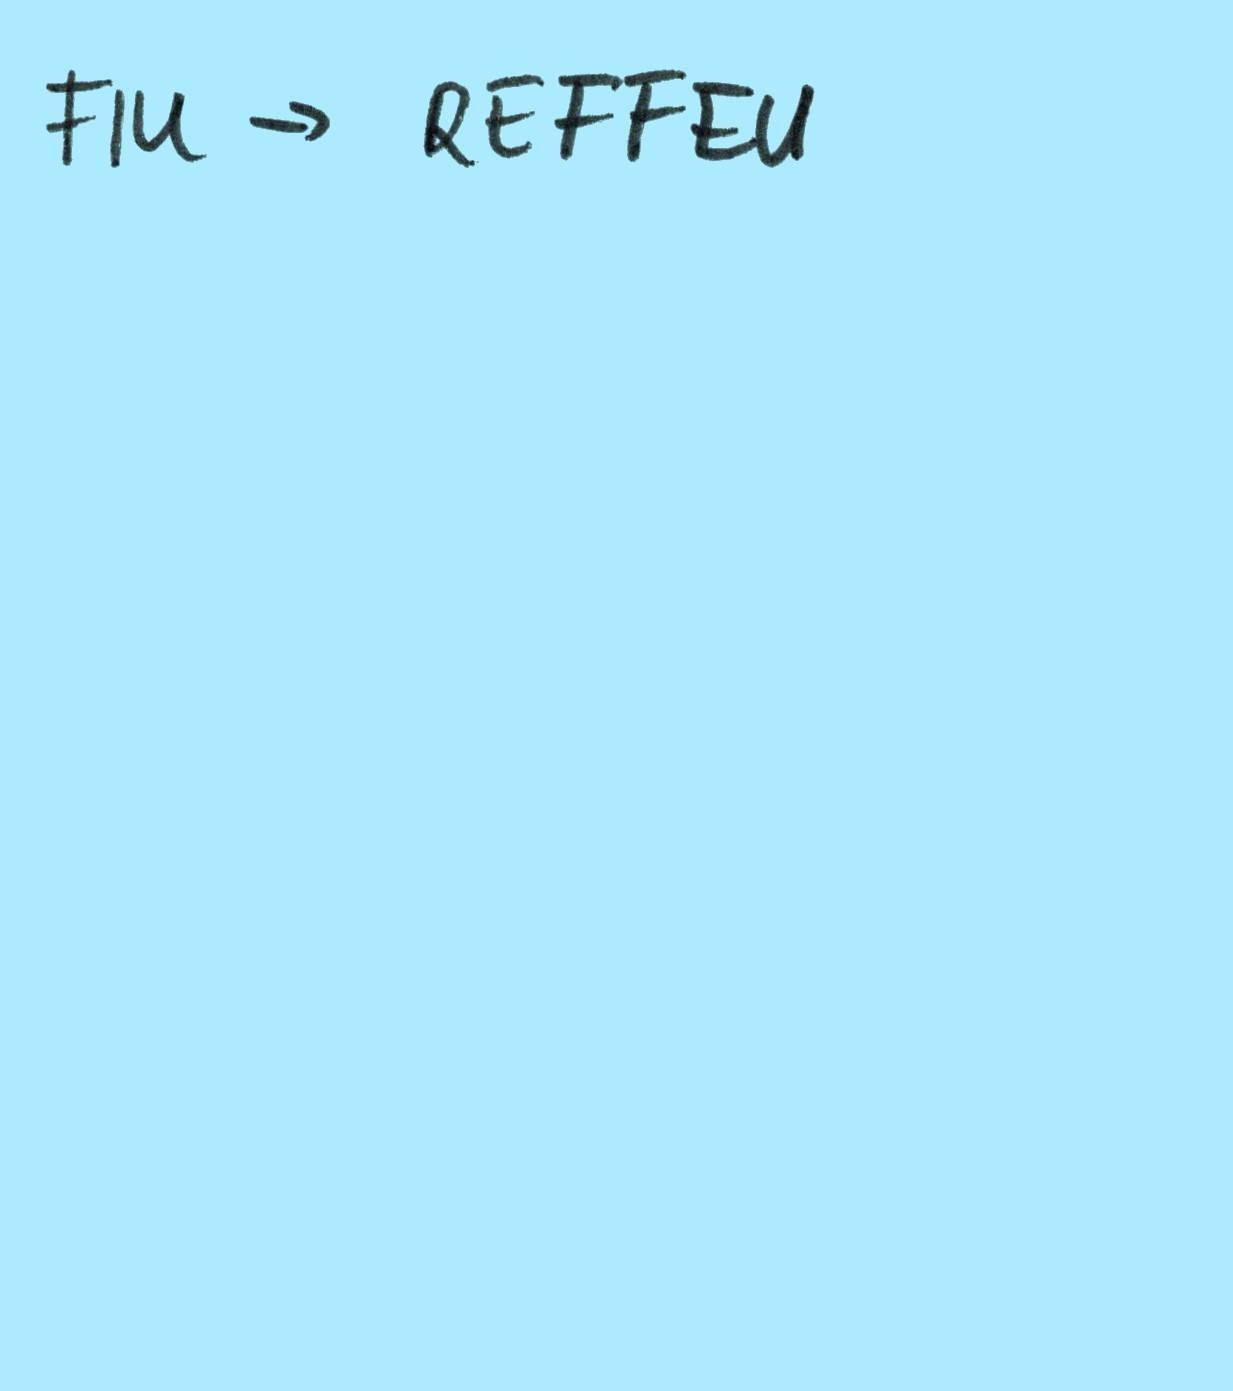 FIU → REFFEU